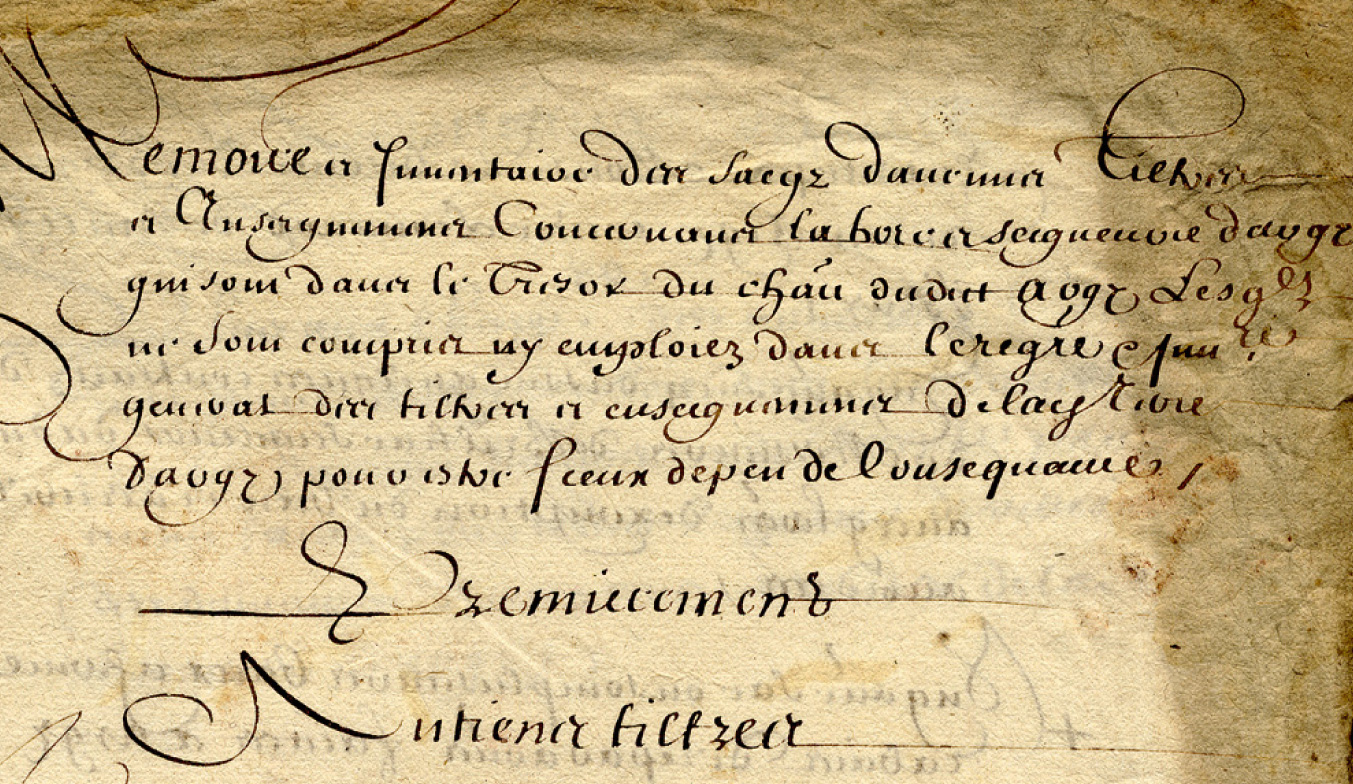 Memoire et Inventaire des sacqz daucuns tiltres
et Enseignemens Concernans la terre et seigneurie daugy
qui sont dans le Tresor du chau dudict Augy Lesqlz
ne sont compris ny emploiez dans le regre & Invre
general des tiltres et enseignemens de la
daugy pour estre de peu de Consequance,
Premierement
Antiens tiltres